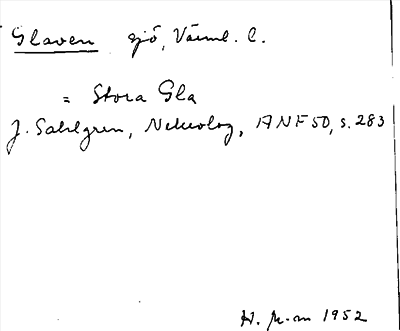 Glaven sjö, Värml. l.
= Stora Gla
J. Sahlgren, Nekrolog, ANF 50, s. 283
1952